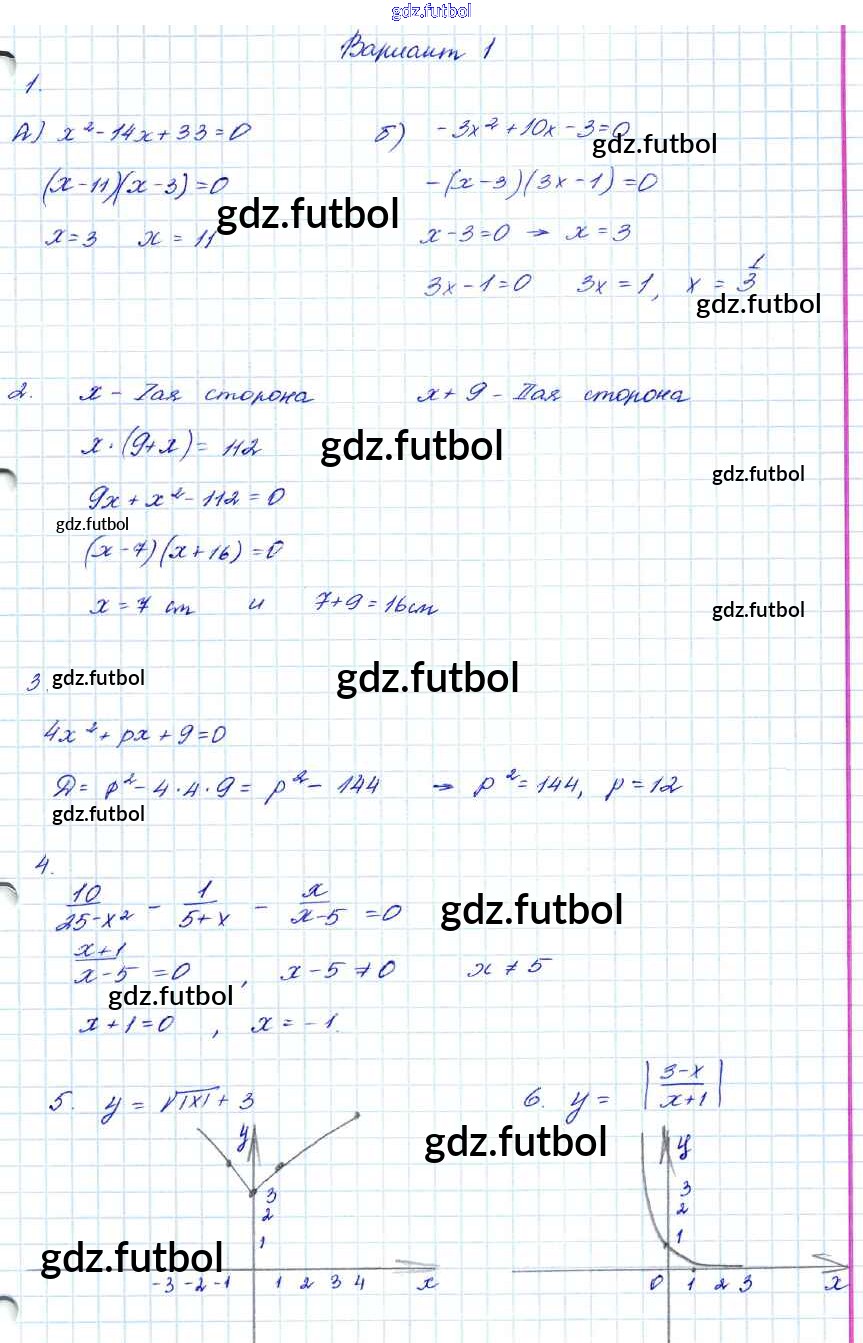 gdz.futbol
Вариант 1
1.
А) x² - 14x + 33 = 0
б) - 3x² + 10x - 3 = 0
gdz.futbol
(x - 11)(x - 3) = 0
-(x - 3)(3x - 1) = 0
gdz.futbol
x = 3 x = 11
x - 3 = 0 → x = 3
3x - 1 = 0 3x = 1, x = 1/3
gdz.futbol
2. x - Iая сторона x + 9 - IIая сторона
x · (9 + x) = 112
gdz.futbol
gdz.futbol
9x + x² - 112 = 0
gdz.futbol
(x - 7)(x + 16) = 0
x = 7 см и 7 + 9 = 16 см
gdz.futbol
3. gdz.futbol
gdz.futbol
4x² + px + 9 = 0
Д = p² - 4 · 4 · 9 = p² - 144 → p² = 144, p = 12
gdz.futbol
4.
10/25 - x² - 1/5 + x - x/x - 5 = 0
gdz.futbol
x + 1/x - 5 = 0, x - 5 ≠ 0 x ≠ 5
gdz.futbol
x + 1 = 0, x = - 1.
5. y = √|x| + 3
6. y = |3 - x/x + 1|
gdz.futbol
y
3
2
1
-3 -2 -1 1 2 3 4 x
y
3
2
1
0 1 2 3 x
gdz.futbol